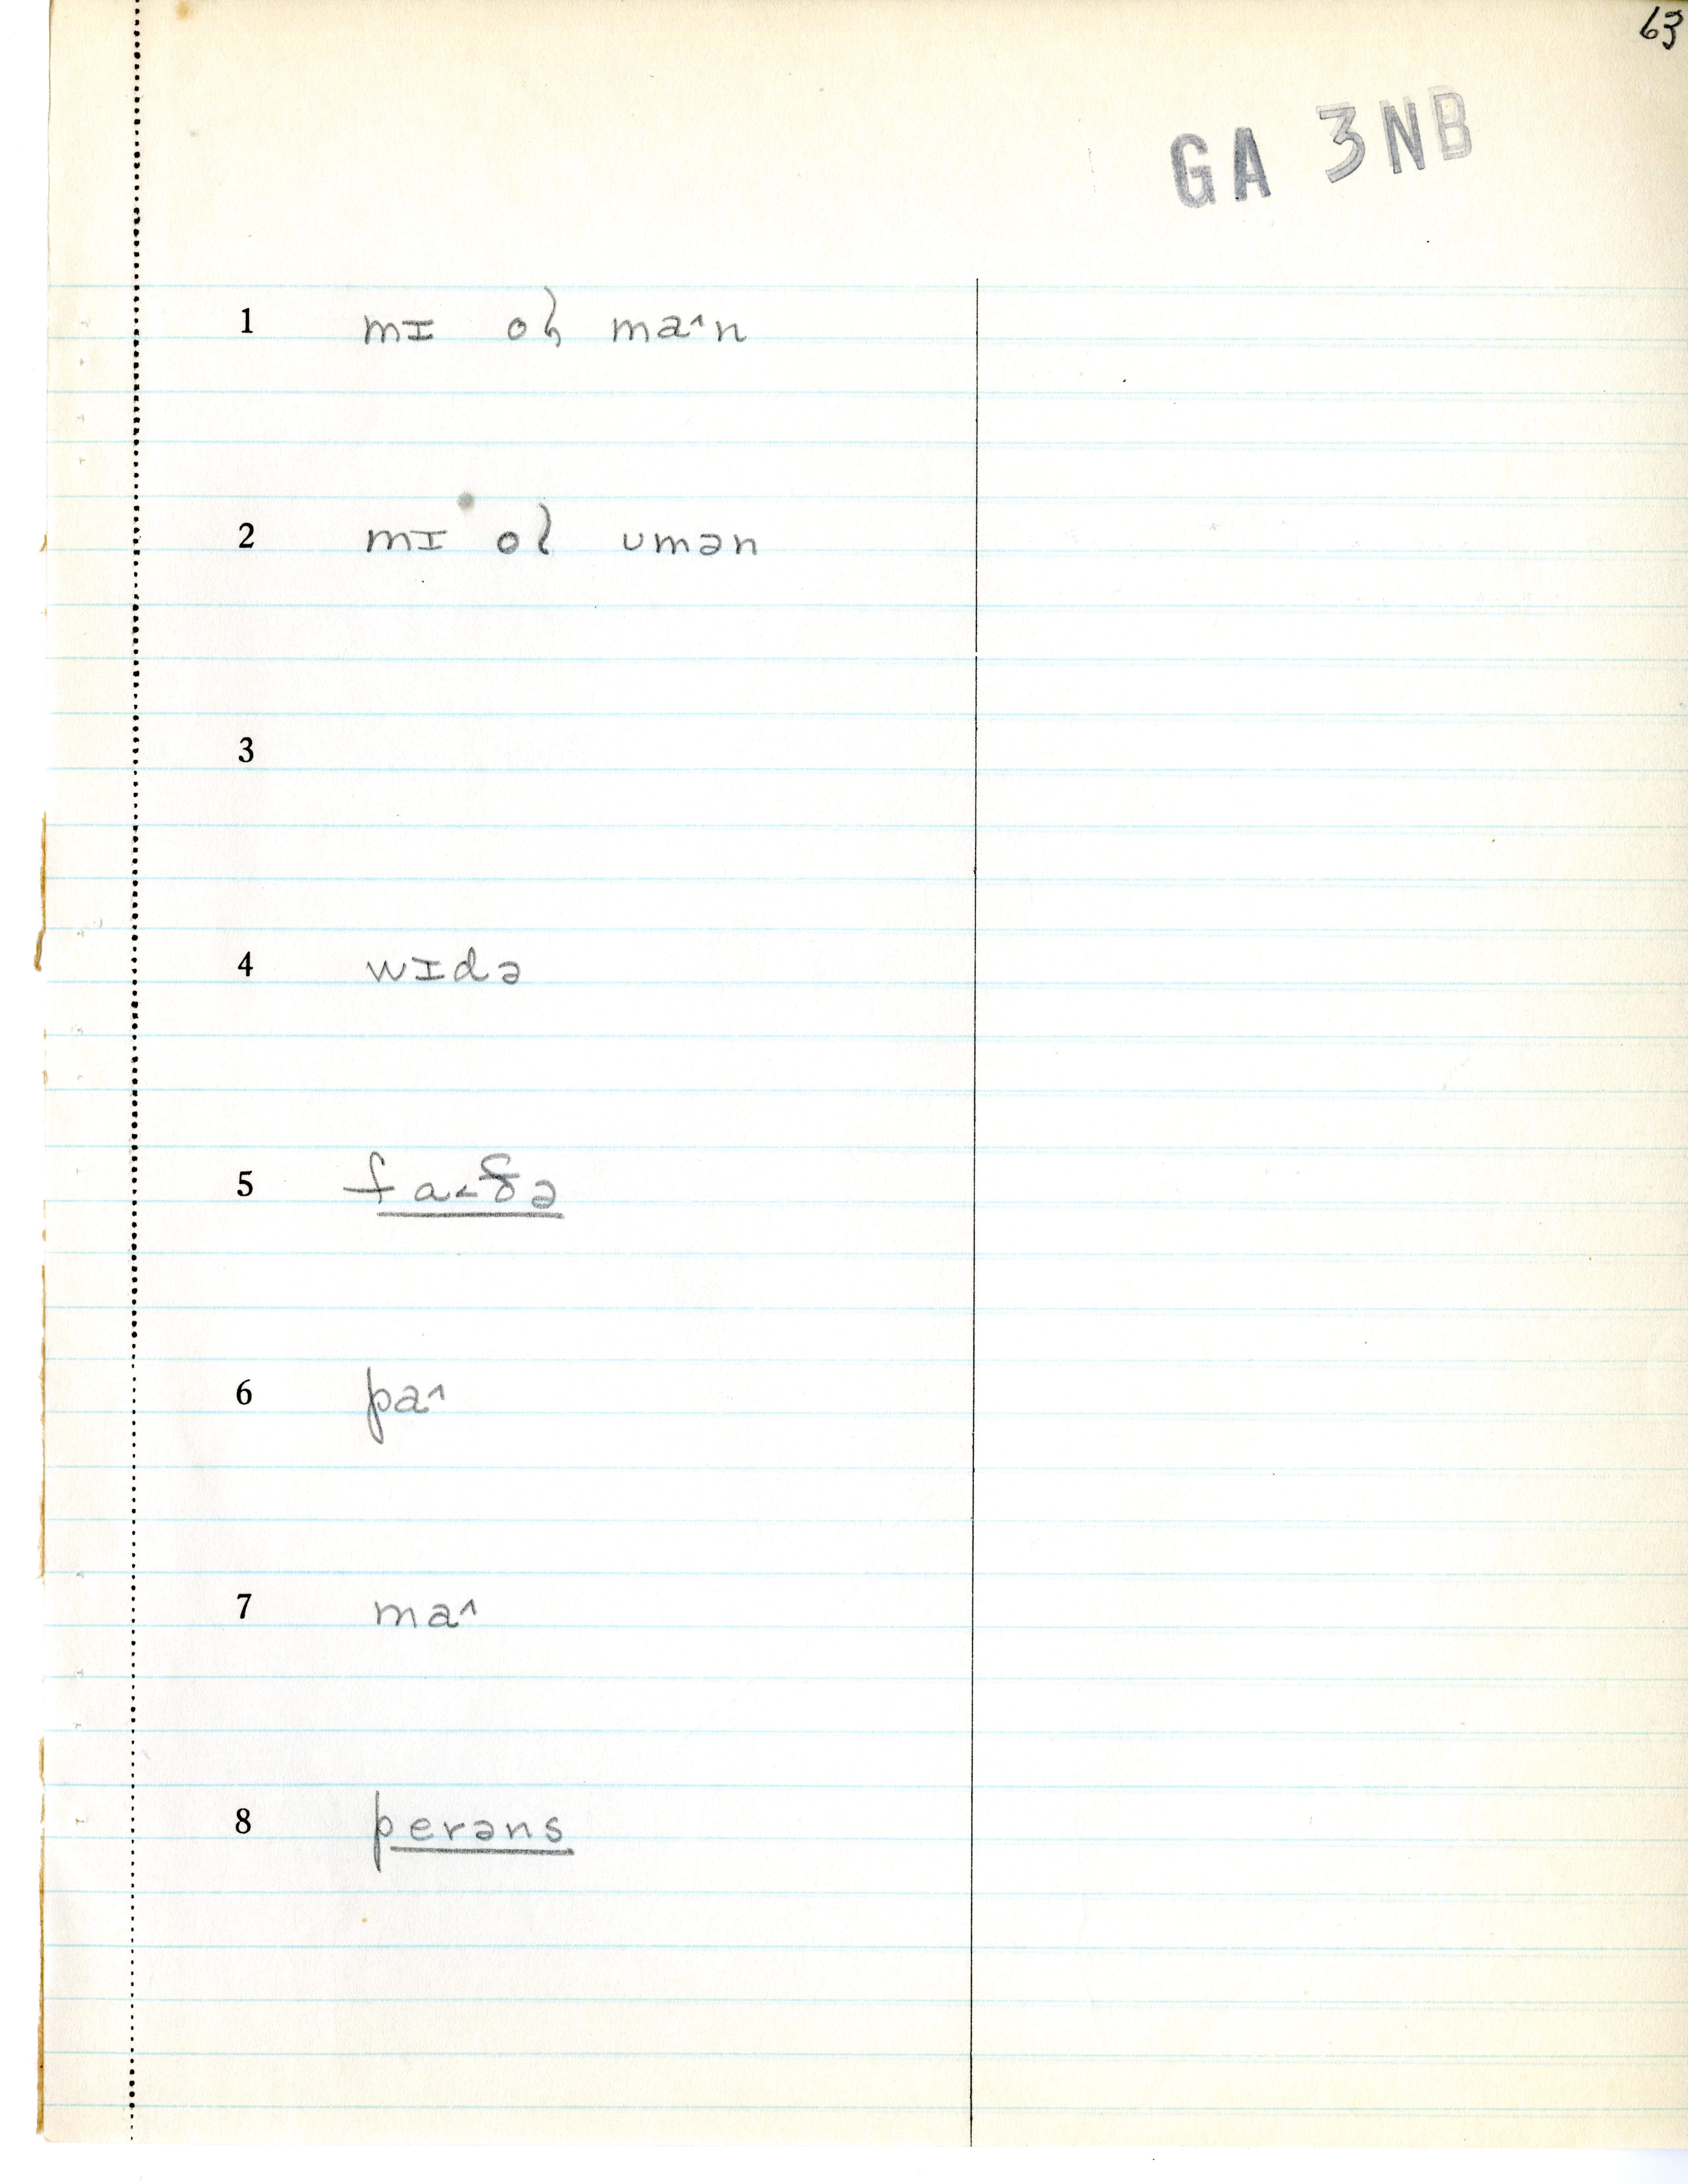 63
GA 3NB
1 mɪ oɫ ma˄n
2 mɪ ol ʊmən
3
4 wɪdə
5 fa˂ðə
6 pa˄
7 ma˄
8 perəns